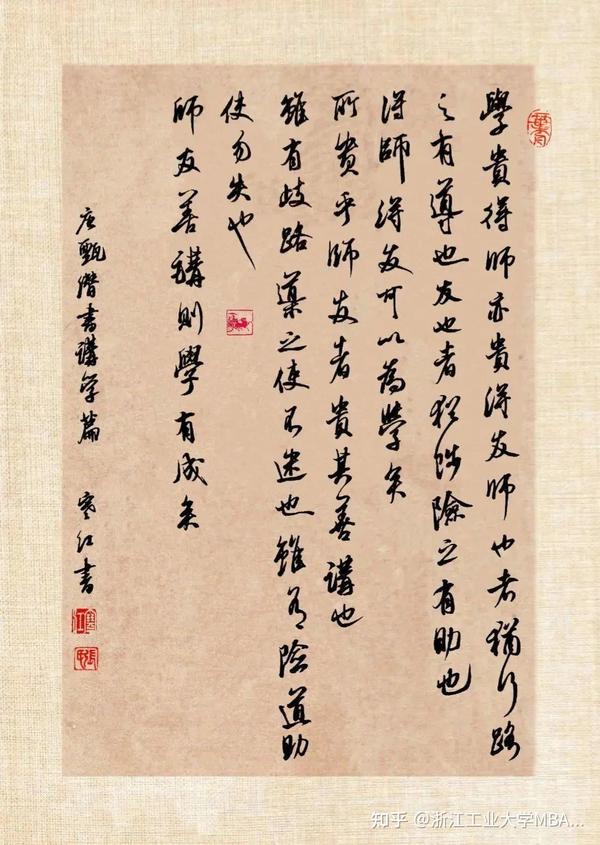 學貴得師亦貴得友師也者猶行路
之有導也友也者猶陟險之有助也
得師得友可以為學矣
所貴乎師友者貴其善講也
雖有歧路導之使不迷也雖有險道助
使勿失也
師友善講則學有成矣
唐甄潛書講学篇 書
知乎 @浙江工业大学MBA...